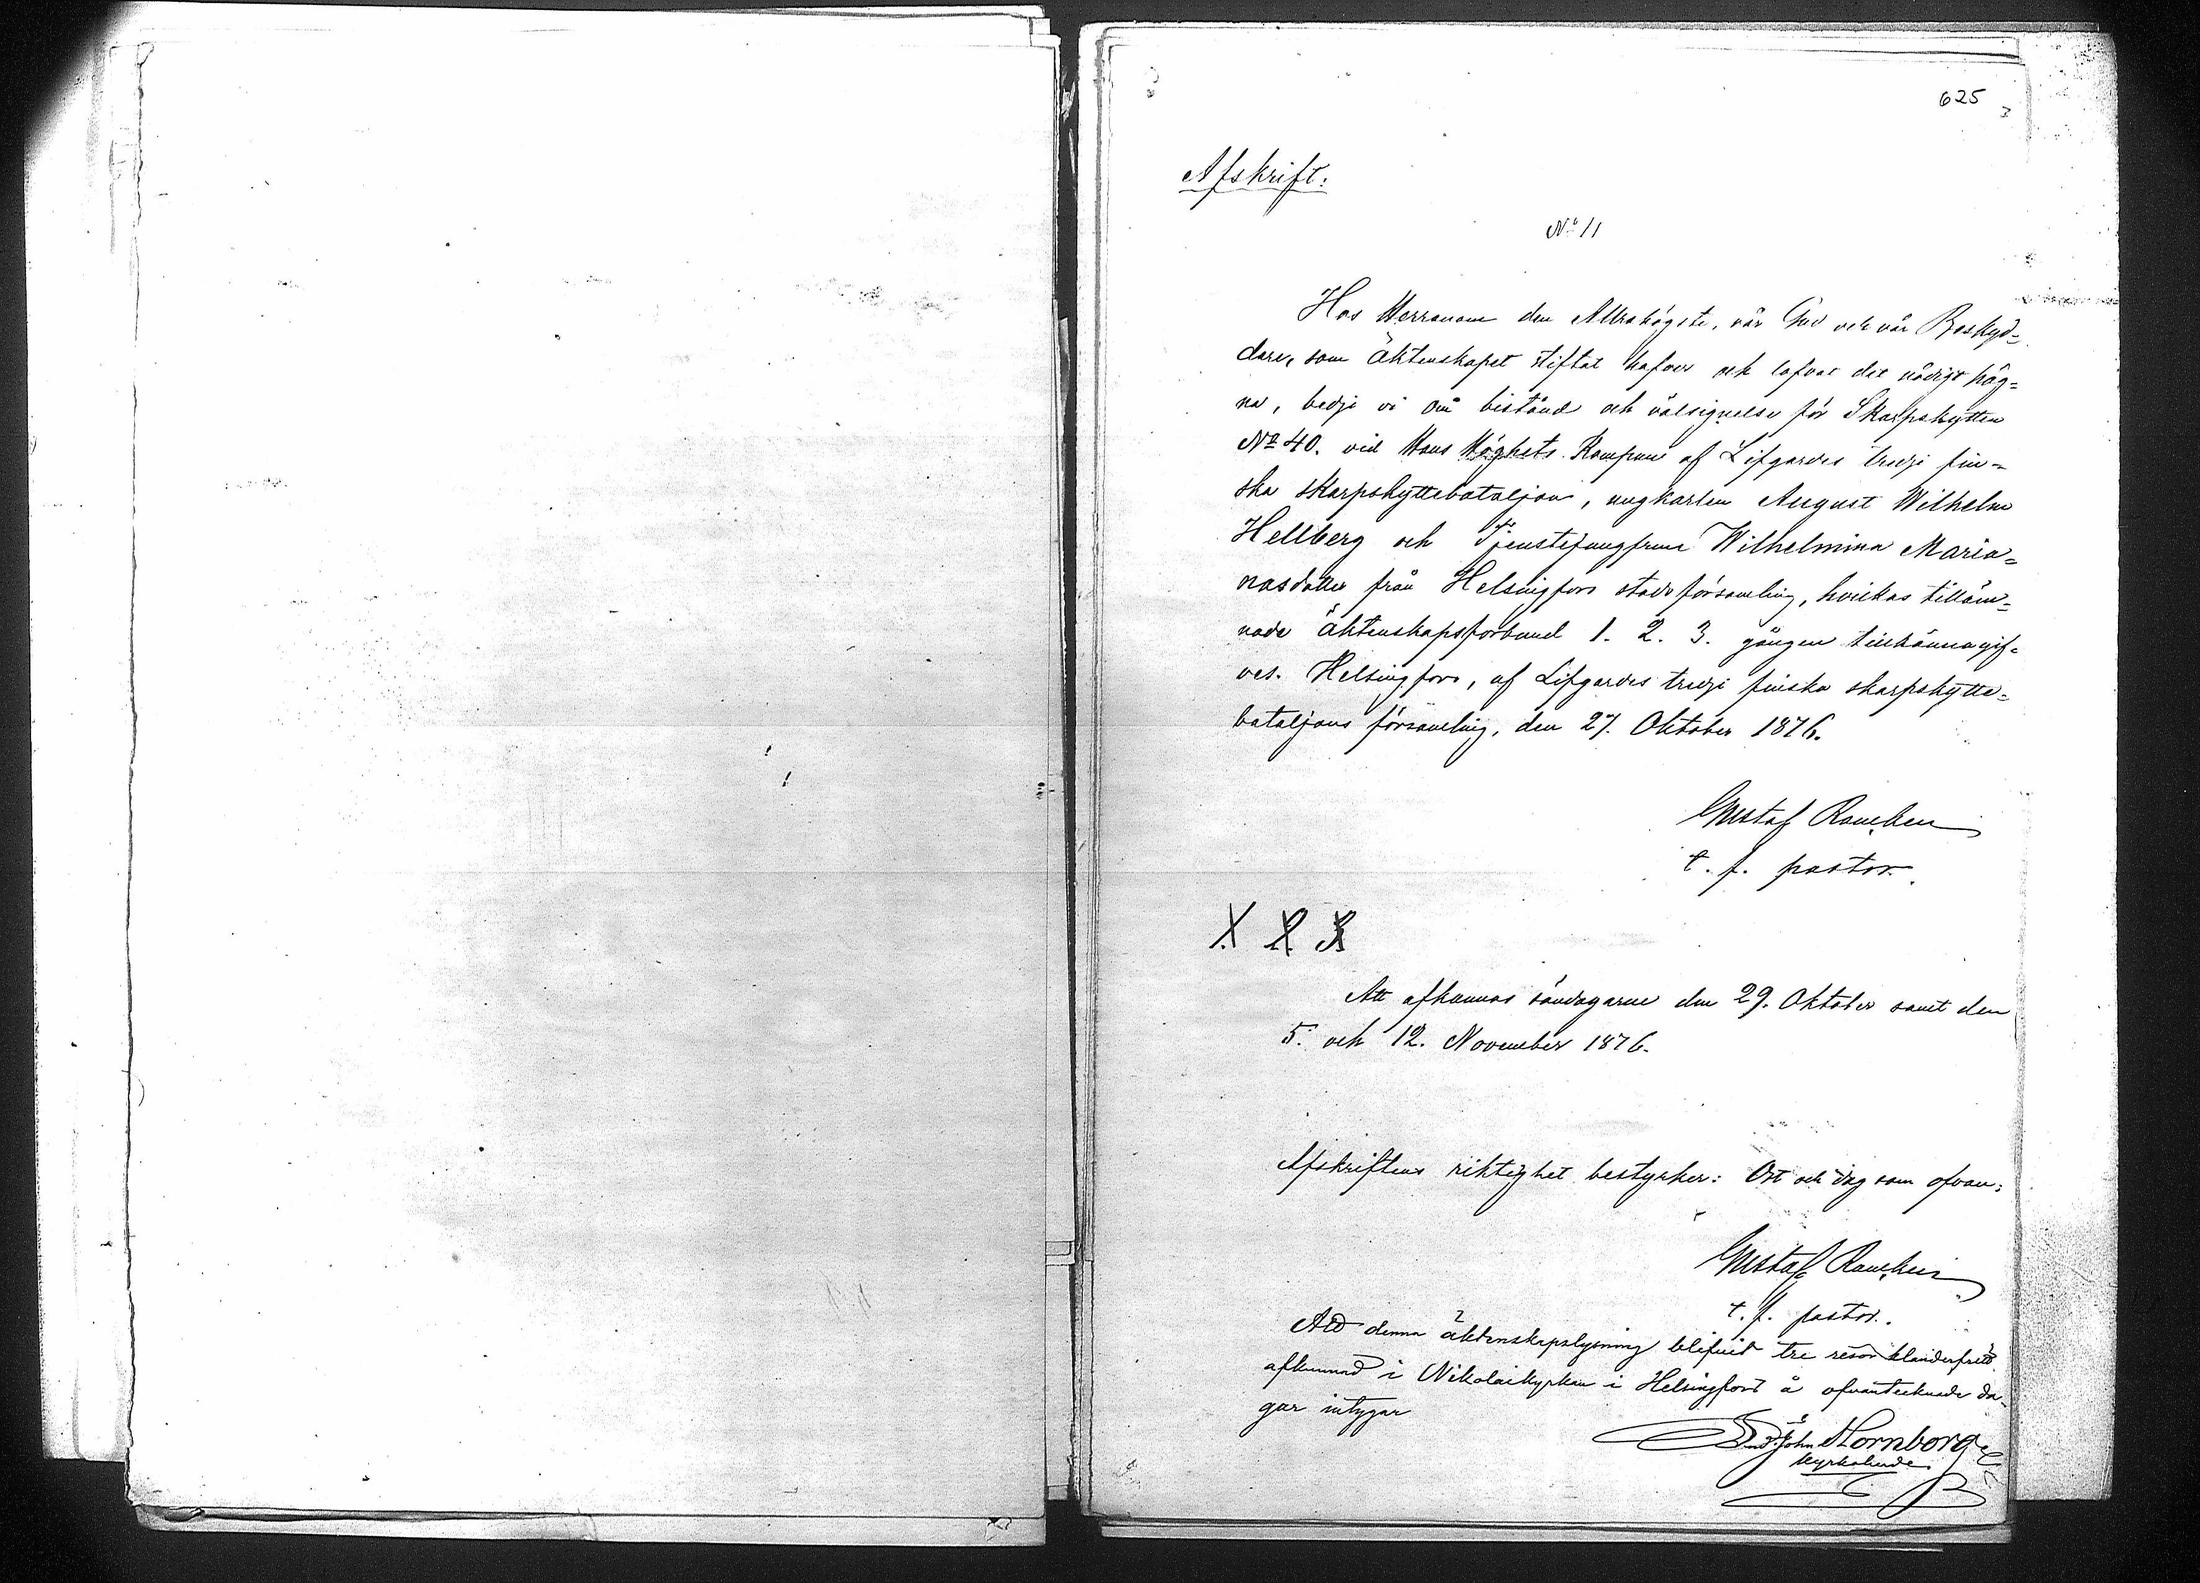 625
Afskrift:
No 11
Hos Herranom den Allrahögste, vår Gud och vår Beskyd=
dare, som Äktenskapet stiftat hafver och lofvat det nådigt häg=
na, bedje vi om bistånd och välsignelse för Skarpskytten
No 40. vid Hans Höghets Kompani af Lifgardes tredje fin=
ska skarpskyttebataljon, ungkarlen August Wilhelm
Hellberg och Tjenstejungfrun Wilhelmina Maria=
nasdotter från Helsingfors stadsförsamling, hvilkas tilläm=
nade äktenskapsförbund 1. 2. 3. gången tillkännagif=
ves. Helsingfors, af Lifgardes tredje finska skarpskytte=
bataljons församling, den 27. Oktober 1876.
Gustaf Rancken
t. f. pastor.
1 2 3
Att afkunnas söndagarne den 29. Oktober samt den
5. och 12. November 1876.
Afskriftens riktighet bestyrker: Ort och dag som ofvan:
Gustaf Rancken
t. f. pastor.
Att denna äktenskapslysning blifvit tre resor klanderfritt
afkunnad i Nikolaikyrkan i Helsingfors å ofvantecknade da=
gar intygar
John Hornborg